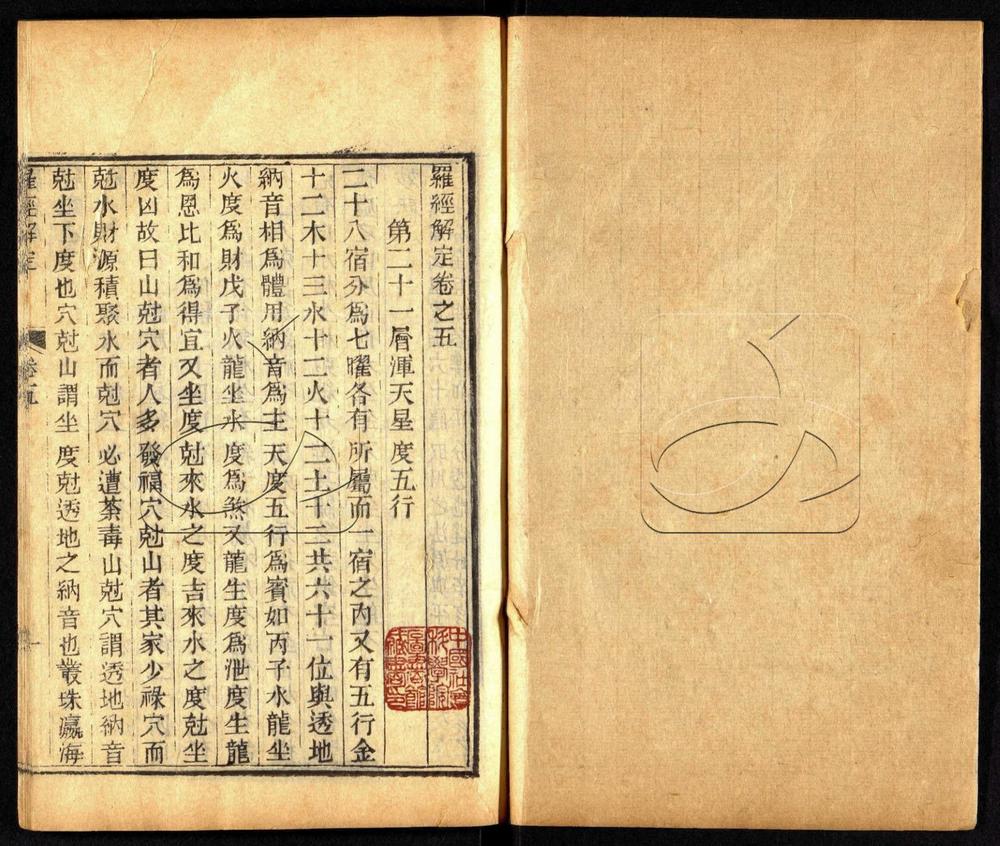 羅經解定卷之五
第二十一層渾天星度五行
二十八宿分爲七曜各有所屬而一宿之內又有五行金
十二木十三水十二火十二土十二共六十一位與透地
納音相爲體用納音爲主天度五行爲賓如丙子水龍坐
火度爲財戊子火龍坐水度爲煞又龍生度爲泄度生龍
爲恩比和爲得宜又坐度尅來水之度吉來水之度尅坐
度凶故曰山尅穴者人多發福穴尅山者其家少祿穴而
尅水財源積聚水而尅穴必遭荼毒山尅穴謂透地納音
尅坐下度也穴尅山謂坐度尅透地之納音也叢珠瀛海
羅經解定
卷五
一
中國社會科學院圖書館藏書印